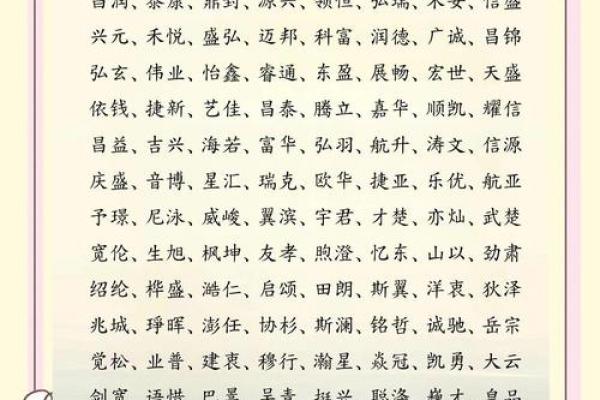 昌润、泰康、鼎封、源兴、领恒、弘瑞、禾安、信盛
兴元、禾悦、盛弘、迈邦、科富、润德、广诚、昌锦
弘玄、伟业、怡鑫、睿通、东盈、展畅、宏世、天盛
依钱、捷新、艺佳、昌泰、腾立、嘉华、顺凯、耀信
昌益、吉兴、海若、富华、弘羽、航升、涛文、信源
庆盛、音博、星汇、瑞克、欧华、捷亚、乐优、航亚
予璟、尼泳、威峻、翼滨、宇君、才楚、亦灿、武楚
宽伦、生旭、枫坤、友孝、煦澄、忆东、山以、劲肃
绍纶、桦盛、澔仁、启颂、田朗、斯翼、洋衷、狄泽
兆城、琤晖、澎任、协杉、斯澜、铭哲、诚驰、岳宗
觉松、业普、建衷、穆行、瀚星、焱冠、凯勇、大云
剑宽、语惜、巴景、昊青、挺兴、聪涤、巍才、皇品